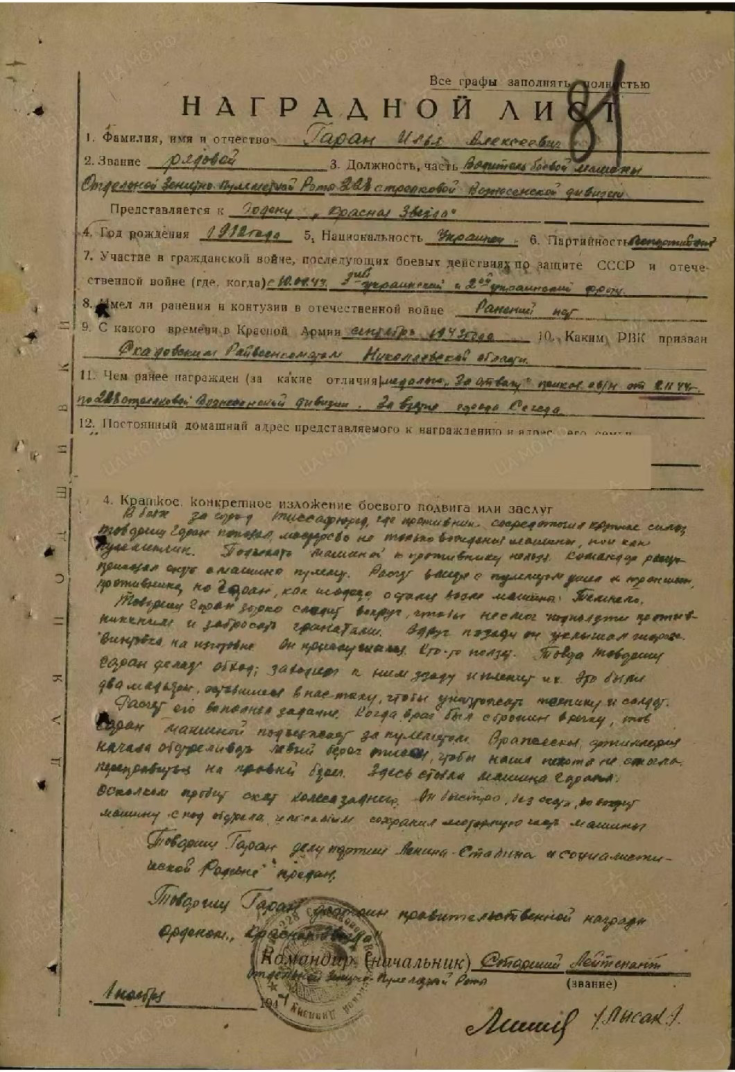 Все графы заполнять полностью
81
НАГРАДНОЙ ЛИСТ
1. Фамилия, имя и отчество Гаран Илья Алексеевич
2. Звание рядовой 3. Должность, часть Водитель боевой машины
Отдельной Зенитно-Пулеметной Роты 228 стрелковой Вознесенской дивизии
Представляется к Ордену „Красная Звезда"
4. Год рождения 1912 года 5. Национальность Украинец 6. Партийность беспартийный
7. Участие в гражданской войне, последующих боевых действиях по защите СССР и отече-
ственной войне (где, когда) украинский и 2ой украинский фронт
8. Имел ли ранения и контузии в отечественной войне Ранений нет
9. С какого времени в Красной Армии сентябрь 1943 года 10. Каким РВК призван
Скадовским Райвоенкоматом Николаевской области
11. Чем ранее награжден (за какие отличия) медалью „За отвагу" приказ от
по 228 стрелковой Вознесенской дивизии. За взятие города Сегеда
12. Постоянный домашний адрес представляемого к награждению и адрес его семьи
4. Краткое, конкретное изложение боевого подвига или заслуг
В боях за город где противник сосредоточил крупные силы
товарищ Гаран показал мастерство не только вождения машины, но и как
пулеметчик. Подъехать машиной к противнику нельзя. Командир
приказал снять с машины пулемет. Расчет вместе с пулеметом к траншеям
противника, но Гаран, как шофер остался возле машины. Темнело.
Товарищ Гаран зорко следит вокруг, чтобы не смог подползти против-
ник и забросать гранатами. Вдруг позади он услышал шорох.
Винтовка на изготовке. Он прислушался. Кто-то ползет. Тогда товарищ
Гаран делает обход; заходит к ним сзади и пленит их. Это были
два мадьяра, чтобы уничтожить технику и солдат.
Расчет его выполнил задание. Когда враг был сброшен в речку, тов
Гаран машиной подъезжает за пулеметом. Вражеская артиллерия
начала обстреливать левый берег чтобы наша пехота не смогла
переправиться на правый берег. Здесь стояла машина Гарана.
Осколком пробит скат колеса заднего. Он быстро, без ската, выводит
машину с под обстрела, и сохранил материальную часть машины
Товарищ Гаран делу партии Ленина-Сталина и социалисти-
ческой Родине предан.
Товарищ Гаран достоин правительственной награды
орденом „Красная Звезда"
Командир (начальник) Старший Лейтенант
Отдельной Зенитно-Пулеметной Роты
(звание)
1 ноября 1944
/Лысак/